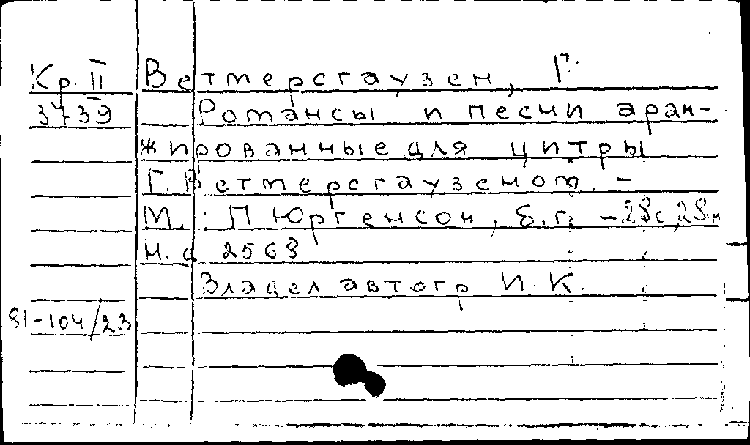 Кр. II Ветмерсгаузен, Г.
3739 Романсы и песни аран-
жированные для цитры
Г. Ветмерсгаузеном. –
М.: П Юргенсон, б.г. –
Н. d. 2563
Владел автогр И. К.
91-104/23